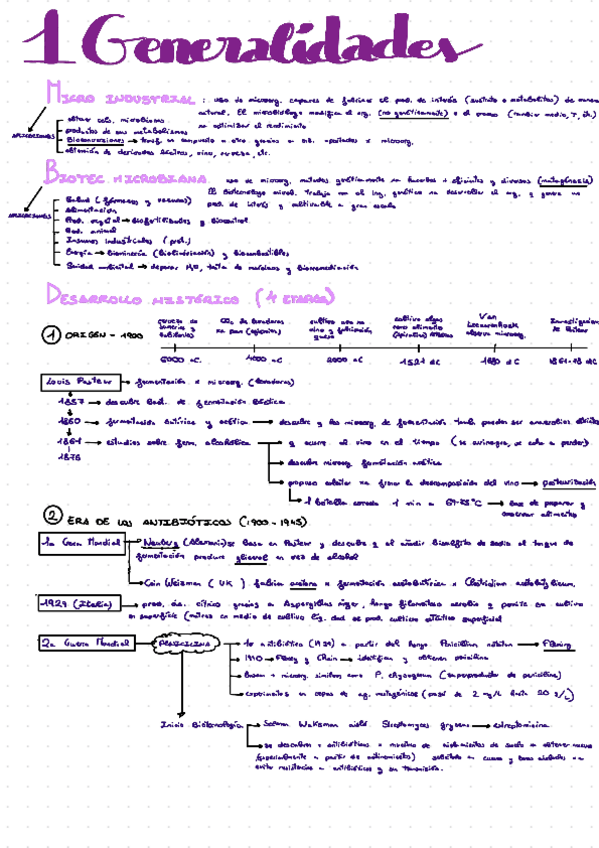 1 Generalidades
MICRO INDUSTRIAL : uso de microorg. capaces de fabricar el prod. de interés (sustrato o metabolitos) de manera
natural. El microbiólogo modifica el org. (no genéticamente) o el proceso (cambiar medio, T, etc.)
para optimizar el rendimiento
APLICACIONES
obtener cels. microbianas
productos de sus metabolismos
Bioconversiones → transf. un compuesto a otro gracias a enz. aportadas x microorg.
obtención de derivados lácteos, vino, cerveza, etc.
BIOTEC MICROBIANA
uso de microorg. mutados genéticamente en fuentes + eficientes y diversas (mutagénesis)
El biotecnólogo microb. trabaja con el ing. genético para desarrollar el org. y genere un
prod. de interés y cultivable a gran escala
APLICACIONES
Salud (fármacos y vacunas)
Alimentación
Prod. vegetal → biofertilizantes y biocontrol
Prod. animal
Insumos industriales (prot.)
Energía → biominería (biolixiviación) y biocombustibles
Sanidad ambiental → depurar H₂O, trata de residuos y biorremediación
DESARROLLO HISTÓRICO (4 ETAPAS)
1 ORIGEN - 1900
cerveza de
sumerios y
babilonios
CO₂ de levaduras
en pan (egipcios)
cultivo uva en
vino y fabricación
queso
cultivo algas
como alimento
(spirulina) Aztecas
Van
Leeuwenhoek
observa microorg.
Investigaciones
de Pasteur
6000 aC.
4000 aC
2000 aC
1521 dC
1680 dC
Louis Pasteur → fermentación x microorg. (levaduras)
1857 → descubre bact. de fermentación láctica
1860 → fermentación butírica y acética → descubre q las microorg. de fermentación tamb. pueden ser anaerobios
1861 → estudios sobre ferm. alcohólica → q ocurre al vino en el tiempo (se avinagra, se echa a perder)
1876
descubre microorg. fermentación acética
propuso calentar para frenar la descomposición del vino → pasteurización
1 botella cerrada 1 min a
conservar alimentos
2 ERA DE LOS ANTIBIÓTICOS (1900-1945)
1a Guerra Mundial → Neuberg (Alemania) se basa en Pasteur y descubre q al añadir bisulfito de sodio al tanque de
fermentación produce glicerol en vez de alcohol
Cain Weizman (UK) fabrica acetona x fermentación acetobutírica x Clostridium acetobutylicum.
1929 (Italia) → prod. ác. cítrico gracias a Aspergillus niger, hongo filamentoso aerobio y permite un cultivo
en superficie
2a Guerra Mundial → PENICILINA → 1er antibiótico (1929) a partir del hongo Penicillium notatum → Fleming
1940 → Florey y Chain → identifican y obtienen penicilina
buscan + microorg. similares como P. chrysogenum (superproductor de penicilina)
experimentos en cepas de ag. mutagénicos (pasó de 2 mg/L hasta 20 g/L)
Inicio Biotecnología → Selman Waksman aisló Streptomyces gryseus → estreptomicina
se descubren + antibióticos x medio de aislamientos de suelo
evitar resistencia a antibióticos y su transmisión.